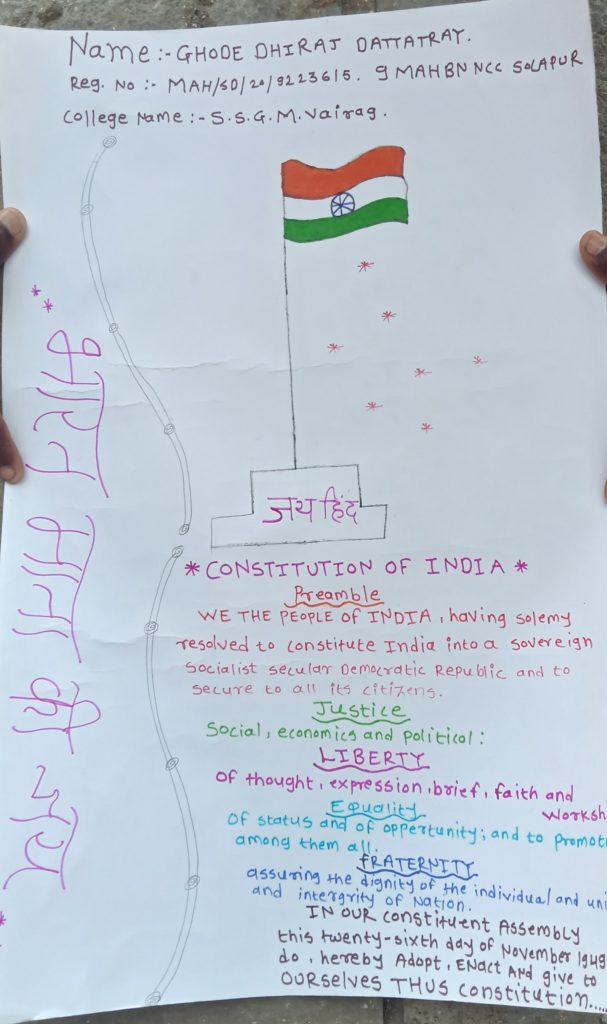 Name :- GHODE DHIRAJ DATTATRAY.
Reg. No :- MAH/SD/20/922365/5. 9 MAH BN NCC SOLAPUR
College Name :- S.S.G.M. Vairag.
भारत माता की जय
जय हिंद
* CONSTITUTION OF INDIA *
Preamble
WE THE PEOPLE OF INDIA, having solemy
resolved to constitute India into a sovereign
Socialist secular Democratic Republic and to
secure to all its citizens.
Justice
Social, economics and political:
LIBERTY
of thought, expression, brief, faith and
worksh
Equality
of status and of oppertunity; and to promot
among them all.
fRATERNITY
assuring the dignity of the individual and uni
and intergrity of Nation.
IN OUR Constituent Assembly
this twenty-sixth day of November 1949
do, hereby Adopt, ENact And give to
OURSELVES THUS Constitution.....